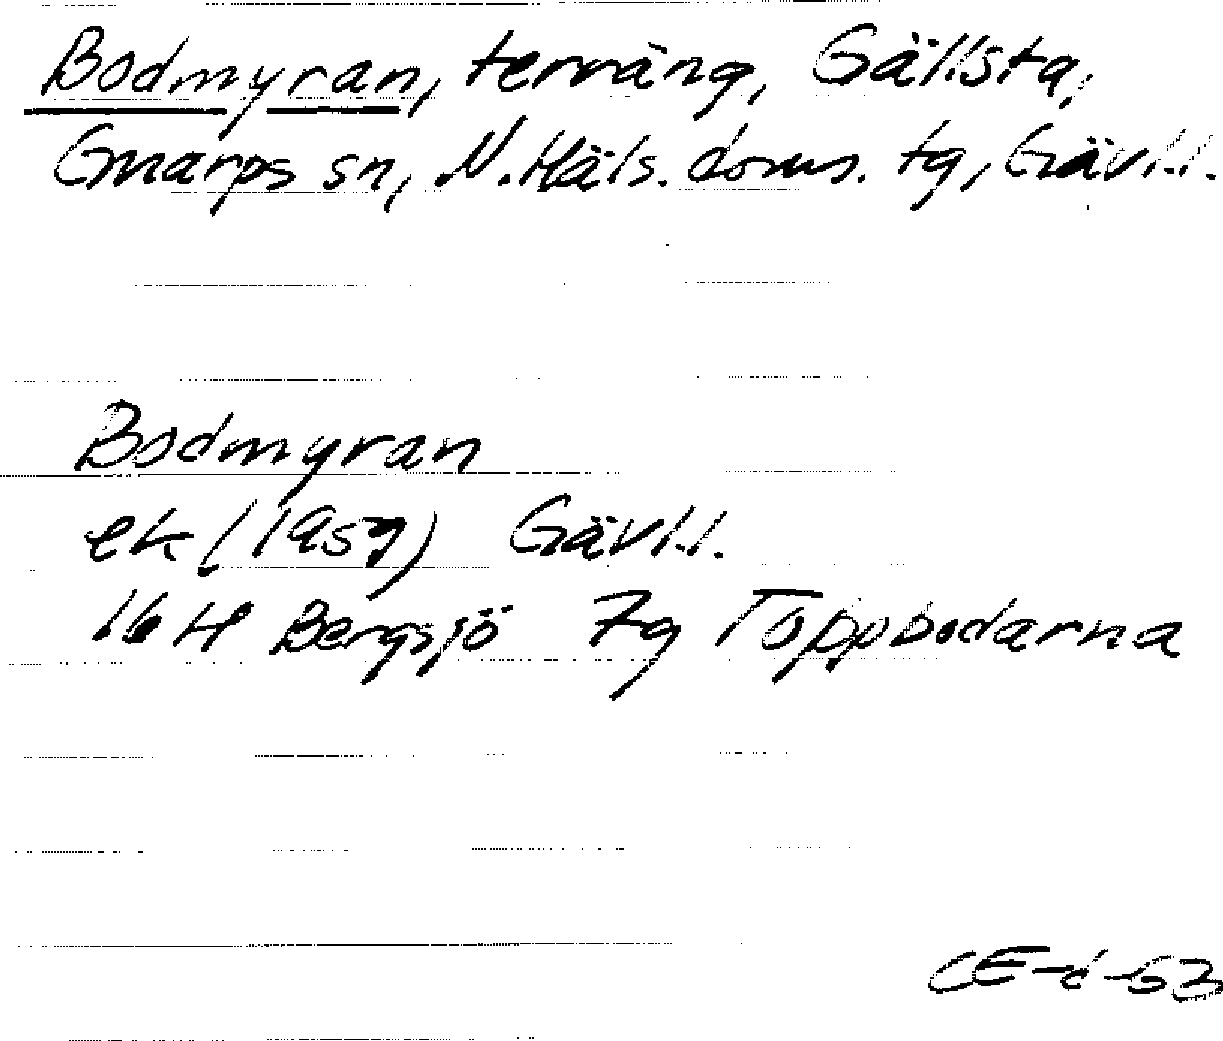 Bodmyran, terräng, Gällsta,
Gnarps sn, N. Häls. doms. tg, Gävl.l.
Bodmyran
ek (1957) Gävl.l.
16 H Bergsjö 7g Toppbodarna